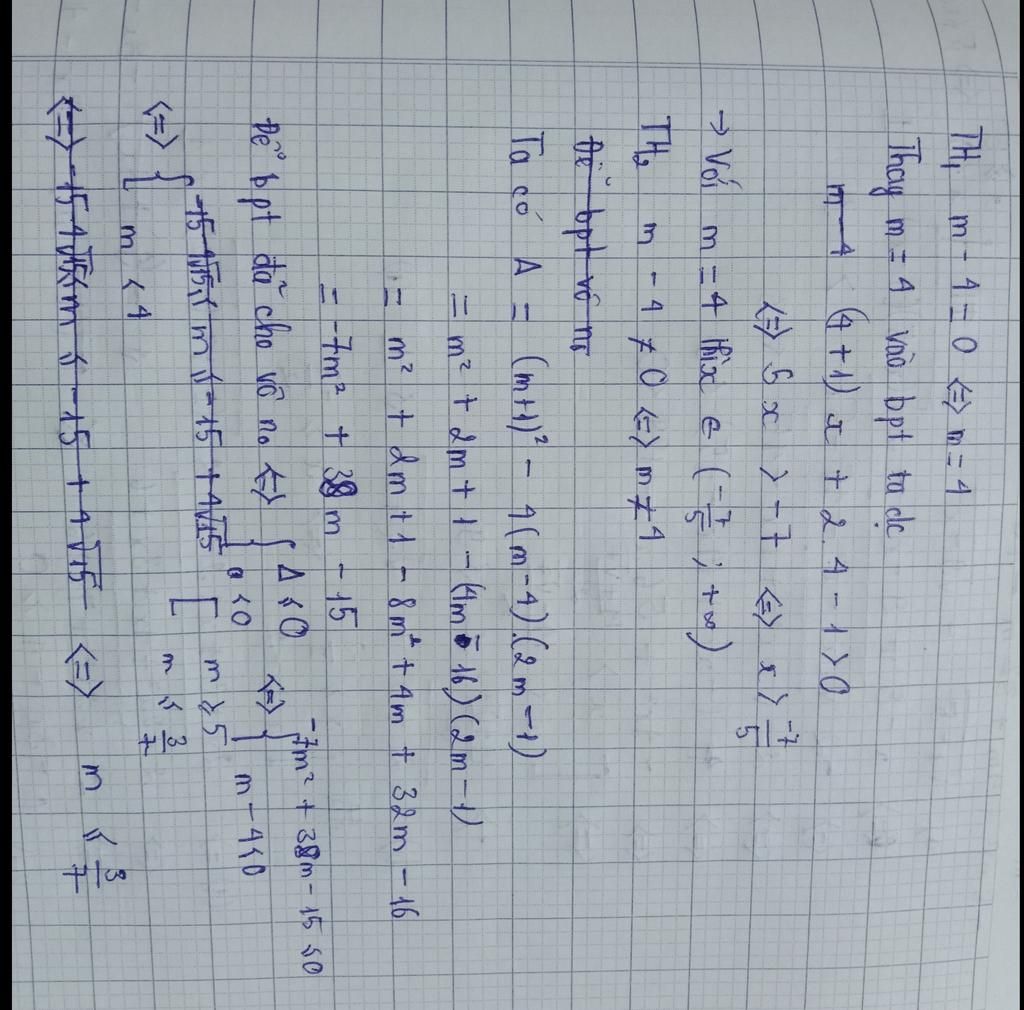 TH₁ m - 4 = 0 ⇔ m = 4
Thay m = 4 vào bpt ta đc
~~m-4~~ (4+1) x + 2.4 - 1 > 0
⇔ 5x > -7 ⇔ x > -7/5
→ Với m = 4 thì x ∈ (-7/5 ; +∞)
TH₂ m - 4 ≠ 0 ⇔ m ≠ 4
~~Để bpt vô n₀~~
Ta có Δ = (m+1)² - 4(m-4).(2m-1)
= m² + 2m + 1 - (4m - 16)(2m-1)
= m² + 2m + 1 - 8m² + 4m + 32m - 16
= -7m² + 38m - 15
Để bpt đã cho vô n₀ ⇔ { Δ ≤ 0 ; a < 0 ⇔ { -7m² + 38m - 15 ≤ 0 ; m - 4 < 0
⇔ { ~~-15-4√15 ≤ m ≤ -15 + 4√15~~ [ m ≥ 5 ; m ≤ 3/7
m < 4
~~⇔ -15-4√15 ≤ m ≤ -15 + 4√15~~ ⇔ m ≤ 3/7